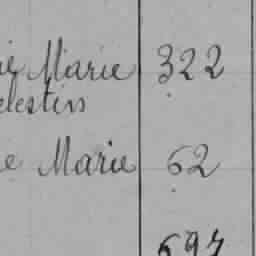 Marie 322
elestin
e Marie 62
697